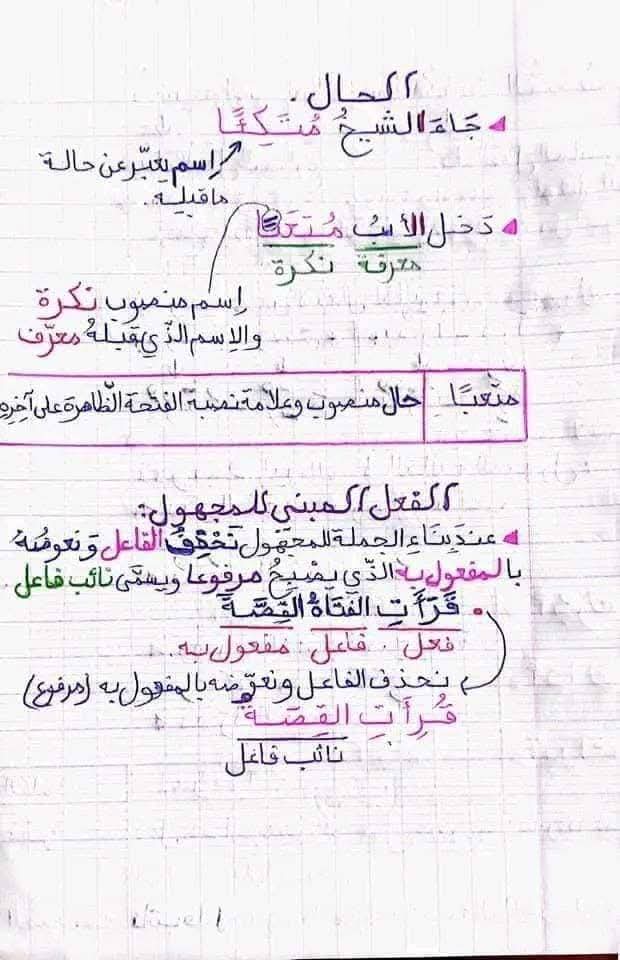 الحال.
جَاءَ الشيخُ مُتَكِئًا
إسم يعبّر عن حالة
ماقبله.
دَخل الأبُ مُتعَبًا
معرفة نكرة
إسم منصوب نكرة
والاسم الذّي قبلهُ معرّف
متعبًا حال منصوب وعلامة نصبه الفتحة الظّاهرة على آخِرِهِ
الفعل المبني للمجهول:
عندَ بِنَاءِ الجملة للمجهول نَحْذِفُ الفاعل وَنعوضُهُ
بالمفعول به الذّي يصْبحُ مرفوعا ويسمَّى نائب فاعل.
قَرَأَتِ الفَتَاةُ القِصَّةَ
فعل فاعل مفعول به.
نحذف الفاعل ونعوّضه بالمفعول به (مرفوع)
قُرِأَتِ القِصَةُ
نائب فاعل